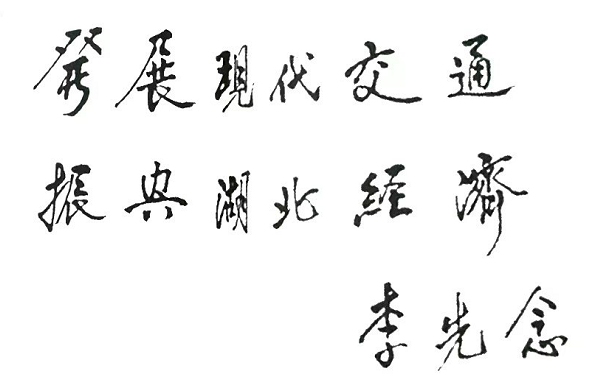 發展現代交通
振興湖北経濟
李先念